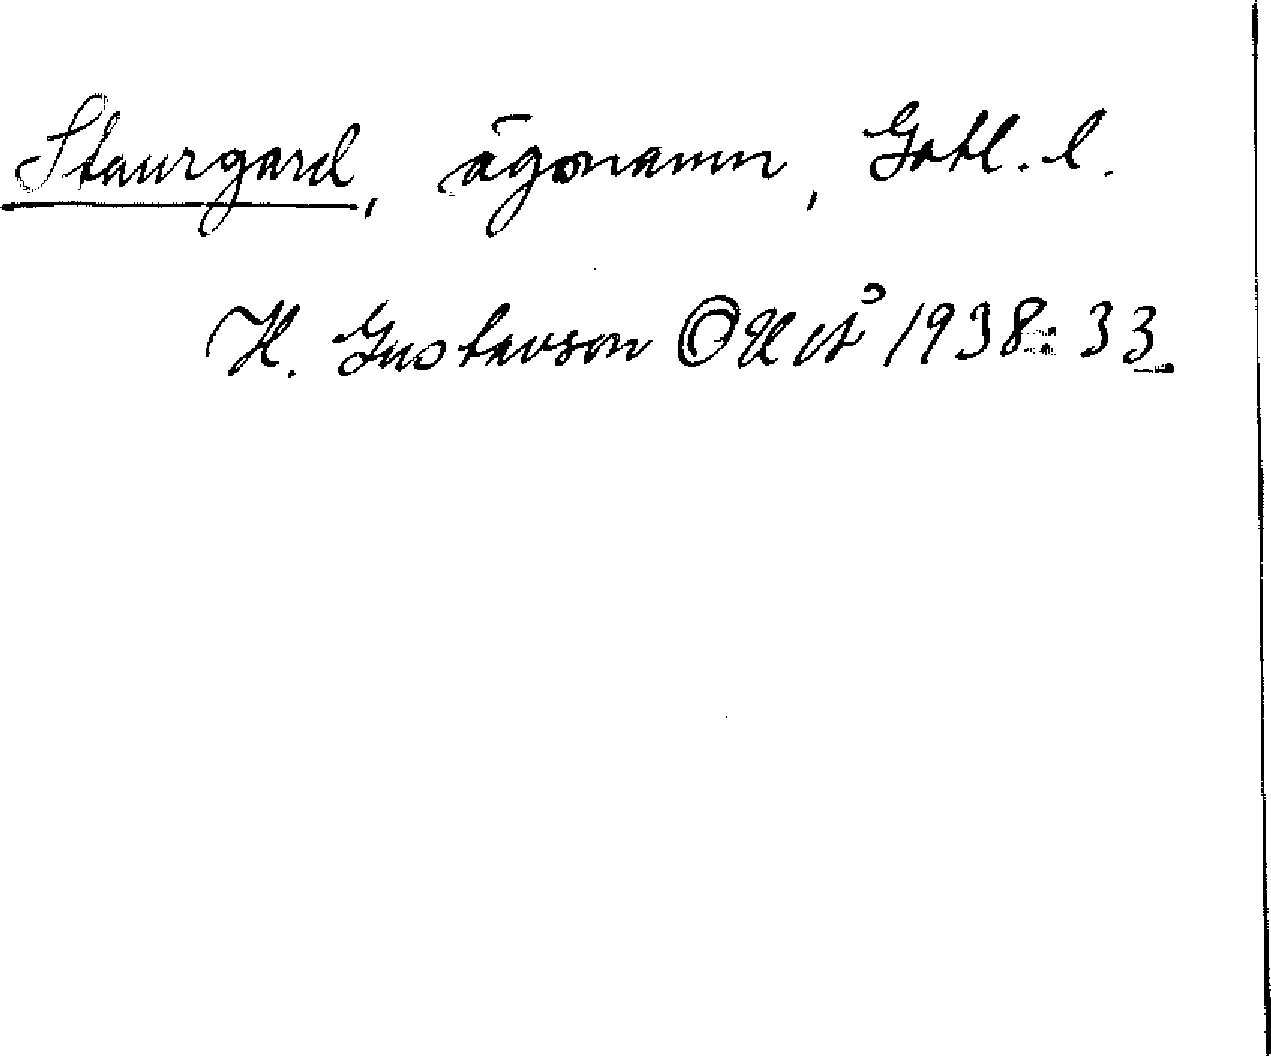 Staurgard, ägonamn, Gotl. l.
H. Gustavson OUÅ 1938: 33.